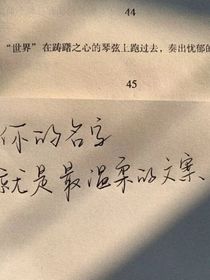 44
“世界”在踌躇之心的琴弦上跑过去，奏出忧郁的
45
你的名字
就是最温柔的文案、